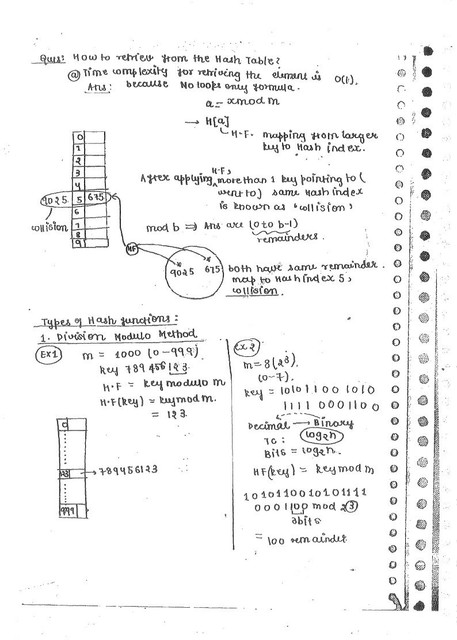 Ques: How to retriev from the Hash Table?
@ Time complexity for retriving the element is O(1).
Ans: because No loops only formula.
a = x mod m
→ H[a]
H.F. mapping from larger
key to Hash index.
0
1
2
3
4
5 675
6
7
8
9
9025
collision
H.F,
After applying ^ more than 1 key pointing to (
went to) same Hash index
is known as 'collision'
mod b ⇒ Ans are (0 to b-1)
remainders.
HF
9025 675
both have same remainder.
map to Hash index 5,
collision.
Types of Hash functions:
1. Division Modulo Method
Ex 1
m = 1000 (0-999)
key 789456123
H.F = key modulo m
H.F(key) = key mod m.
= 123
0
123 → 789456123
999
Ex 2
m = 8 (2^3)
(0-7).
key = 10101100 1010
1111 0001100
Decimal → Binary
TC: log2n
Bits = log2n.
HF(key) = key mod m
1010110010101111
0001100 mod 2^3
3bits
= 100 remainder